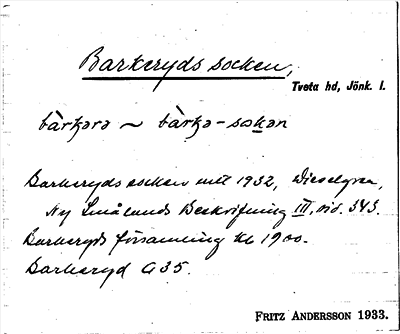 Barkeryds socken,
Tveta hd, Jönk. l.
bàrkara ~ bàrka-sokan
Barkeryds socken 1932, Wieselgren,
Ny Smålands Beskrifning III, sid. 343.
Barkeryds församling Kb 1900.
Barkeryd G35.
FRITZ ANDERSSON 1933.